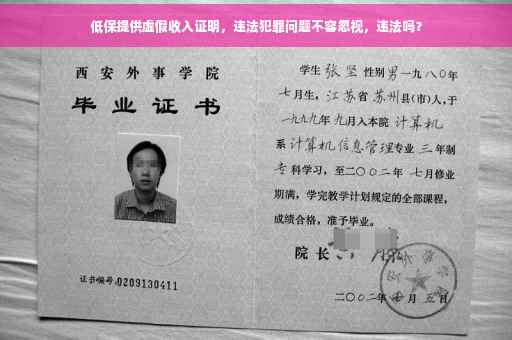 低保提供虚假收入证明，违法犯罪问题不容忽视，违法吗？
西安外事学院
毕业证书
证书编号:0209130411
学生 张坚 性别 男 一九八〇年
七月生，江苏省 苏州县(市)人,于
一九九九年 九月入本院 计算机
系 计算机信息管理专业 三 年制
专科学习，至二〇〇二年 七月修业
期满，学完教学计划规定的全部课程，
成绩合格，准予毕业。
院长
二〇〇二年 月 五日